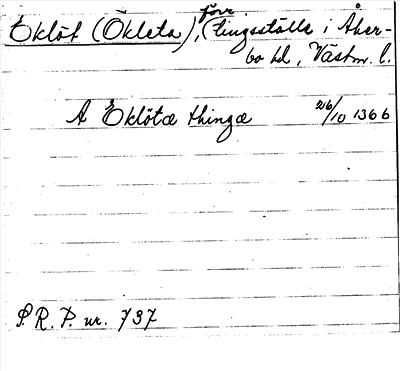 Eklöt (Ökleta), förr tingsställe i Åker-
bo hd, Västm. l.
A Eklöta thinga 26/10 1366
S. R. P. nr. 737